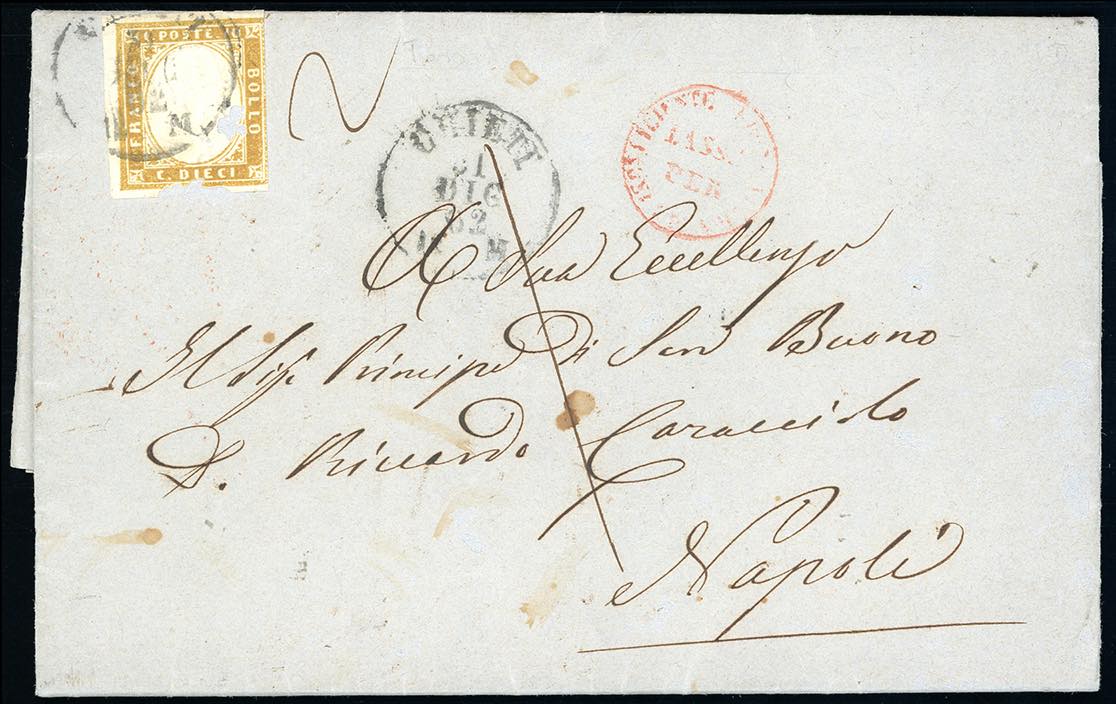 C. POSTE
FRANCO
BOLLO
C. DIECI
M
2
CHIETI
31
DIC
62
M
INSUFFICIENTE
PER
A Sua Eccellenza
Il Sig. Principe di San Buono
D. Riccardo Caracciolo
Napoli